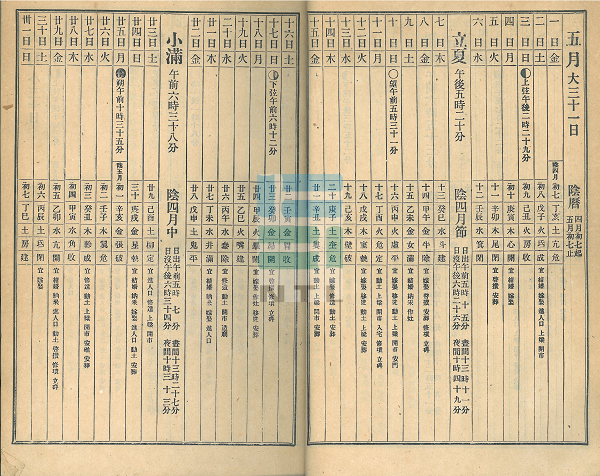 五月大三十一日 陰曆 四月初七起 五月初七止
一日 金 陰四月 初七 丁亥 土 亢 危
二日 土 初八 戊子 火 氐 成 宜 結婚 移徙 動土 上樑 開市
三日 日 上弦午後二時二十九分 初九 己丑 火 房 收
四日 月 初十 庚寅 木 心 開 宜 結婚 嫁娶
五日 火 十一 辛卯 木 尾 閉 宜 啓攢 安葬
六日 水 十二 壬辰 水 箕 閉
立夏 午後五時二十分 陰四月節 日出午前五時一十五分 晝間十三時一十一分 日沒午後六時二十六分 夜間十時四十九分
七日 木 十三 癸巳 水 斗 建
八日 金 十四 甲午 金 牛 除 宜 嫁娶 啓攢 安葬 修墳 立碑
九日 土 十五 乙未 金 女 滿 宜 結婚 納采 作灶
十日 日 望午前五時三十一分 十六 丙申 火 虛 平 宜 嫁娶 移徙 動土 上樑 開市 安門
十一日 月 十七 丁酉 火 危 定 宜 結婚 動土 上樑 開市 入宅 修墳 立碑
十二日 火 十八 戊戌 木 室 執 宜 結婚 嫁娶 移徙 動土 上樑 安葬
十三日 水 十九 己亥 木 壁 破
十四日 木 二十 庚子 土 奎 危 宜 動土 上樑 安葬
十五日 金 廿一 辛丑 土 婁 成 宜 結婚 嫁娶 移徙 動土 上樑 開市 安葬
十六日 土 廿二 壬寅 金 胃 收
十七日 日 下弦午前六時十二分 廿三 癸卯 金 昴 開 宜 修墳 立碑
十八日 月 廿四 甲辰 火 畢 閉 宜 嫁娶 作灶 移徙 安葬
十九日 火 廿五 乙巳 火 觜 建
二十日 水 廿六 丙午 水 參 除 宜 修造 動土 開市
廿一日 木 廿七 丁未 水 井 滿 宜 結婚 納采 嫁娶 進人口
廿二日 金 廿八 戊申 土 鬼 平
小滿 午前六時三十八分 陰四月中 日出午前五時七分 晝間十三時二十七分 日沒午後六時三十四分 夜間十時三十三分
廿三日 土 廿九 己酉 土 柳 定 宜 進人口 修造 動土 上樑 開市
廿四日 日 三十 庚戌 金 星 執 宜 結婚 納采 嫁娶 進人口 動土 安葬
廿五日 月 朔午前十時三十五分 陰五月 初一 辛亥 金 張 破
廿六日 火 初二 壬子 木 翼 危
廿七日 水 初三 癸丑 木 軫 成 宜 修造 動土 上樑 開市 安葬
廿八日 木 初四 甲寅 水 角 收
廿九日 金 初五 乙卯 水 亢 開 宜 結婚 納采 進人口 動土 啓攢 修墳 立碑
三十日 土 初六 丙辰 土 氐 閉 宜 嫁娶
卅一日 日 初七 丁巳 土 房 建